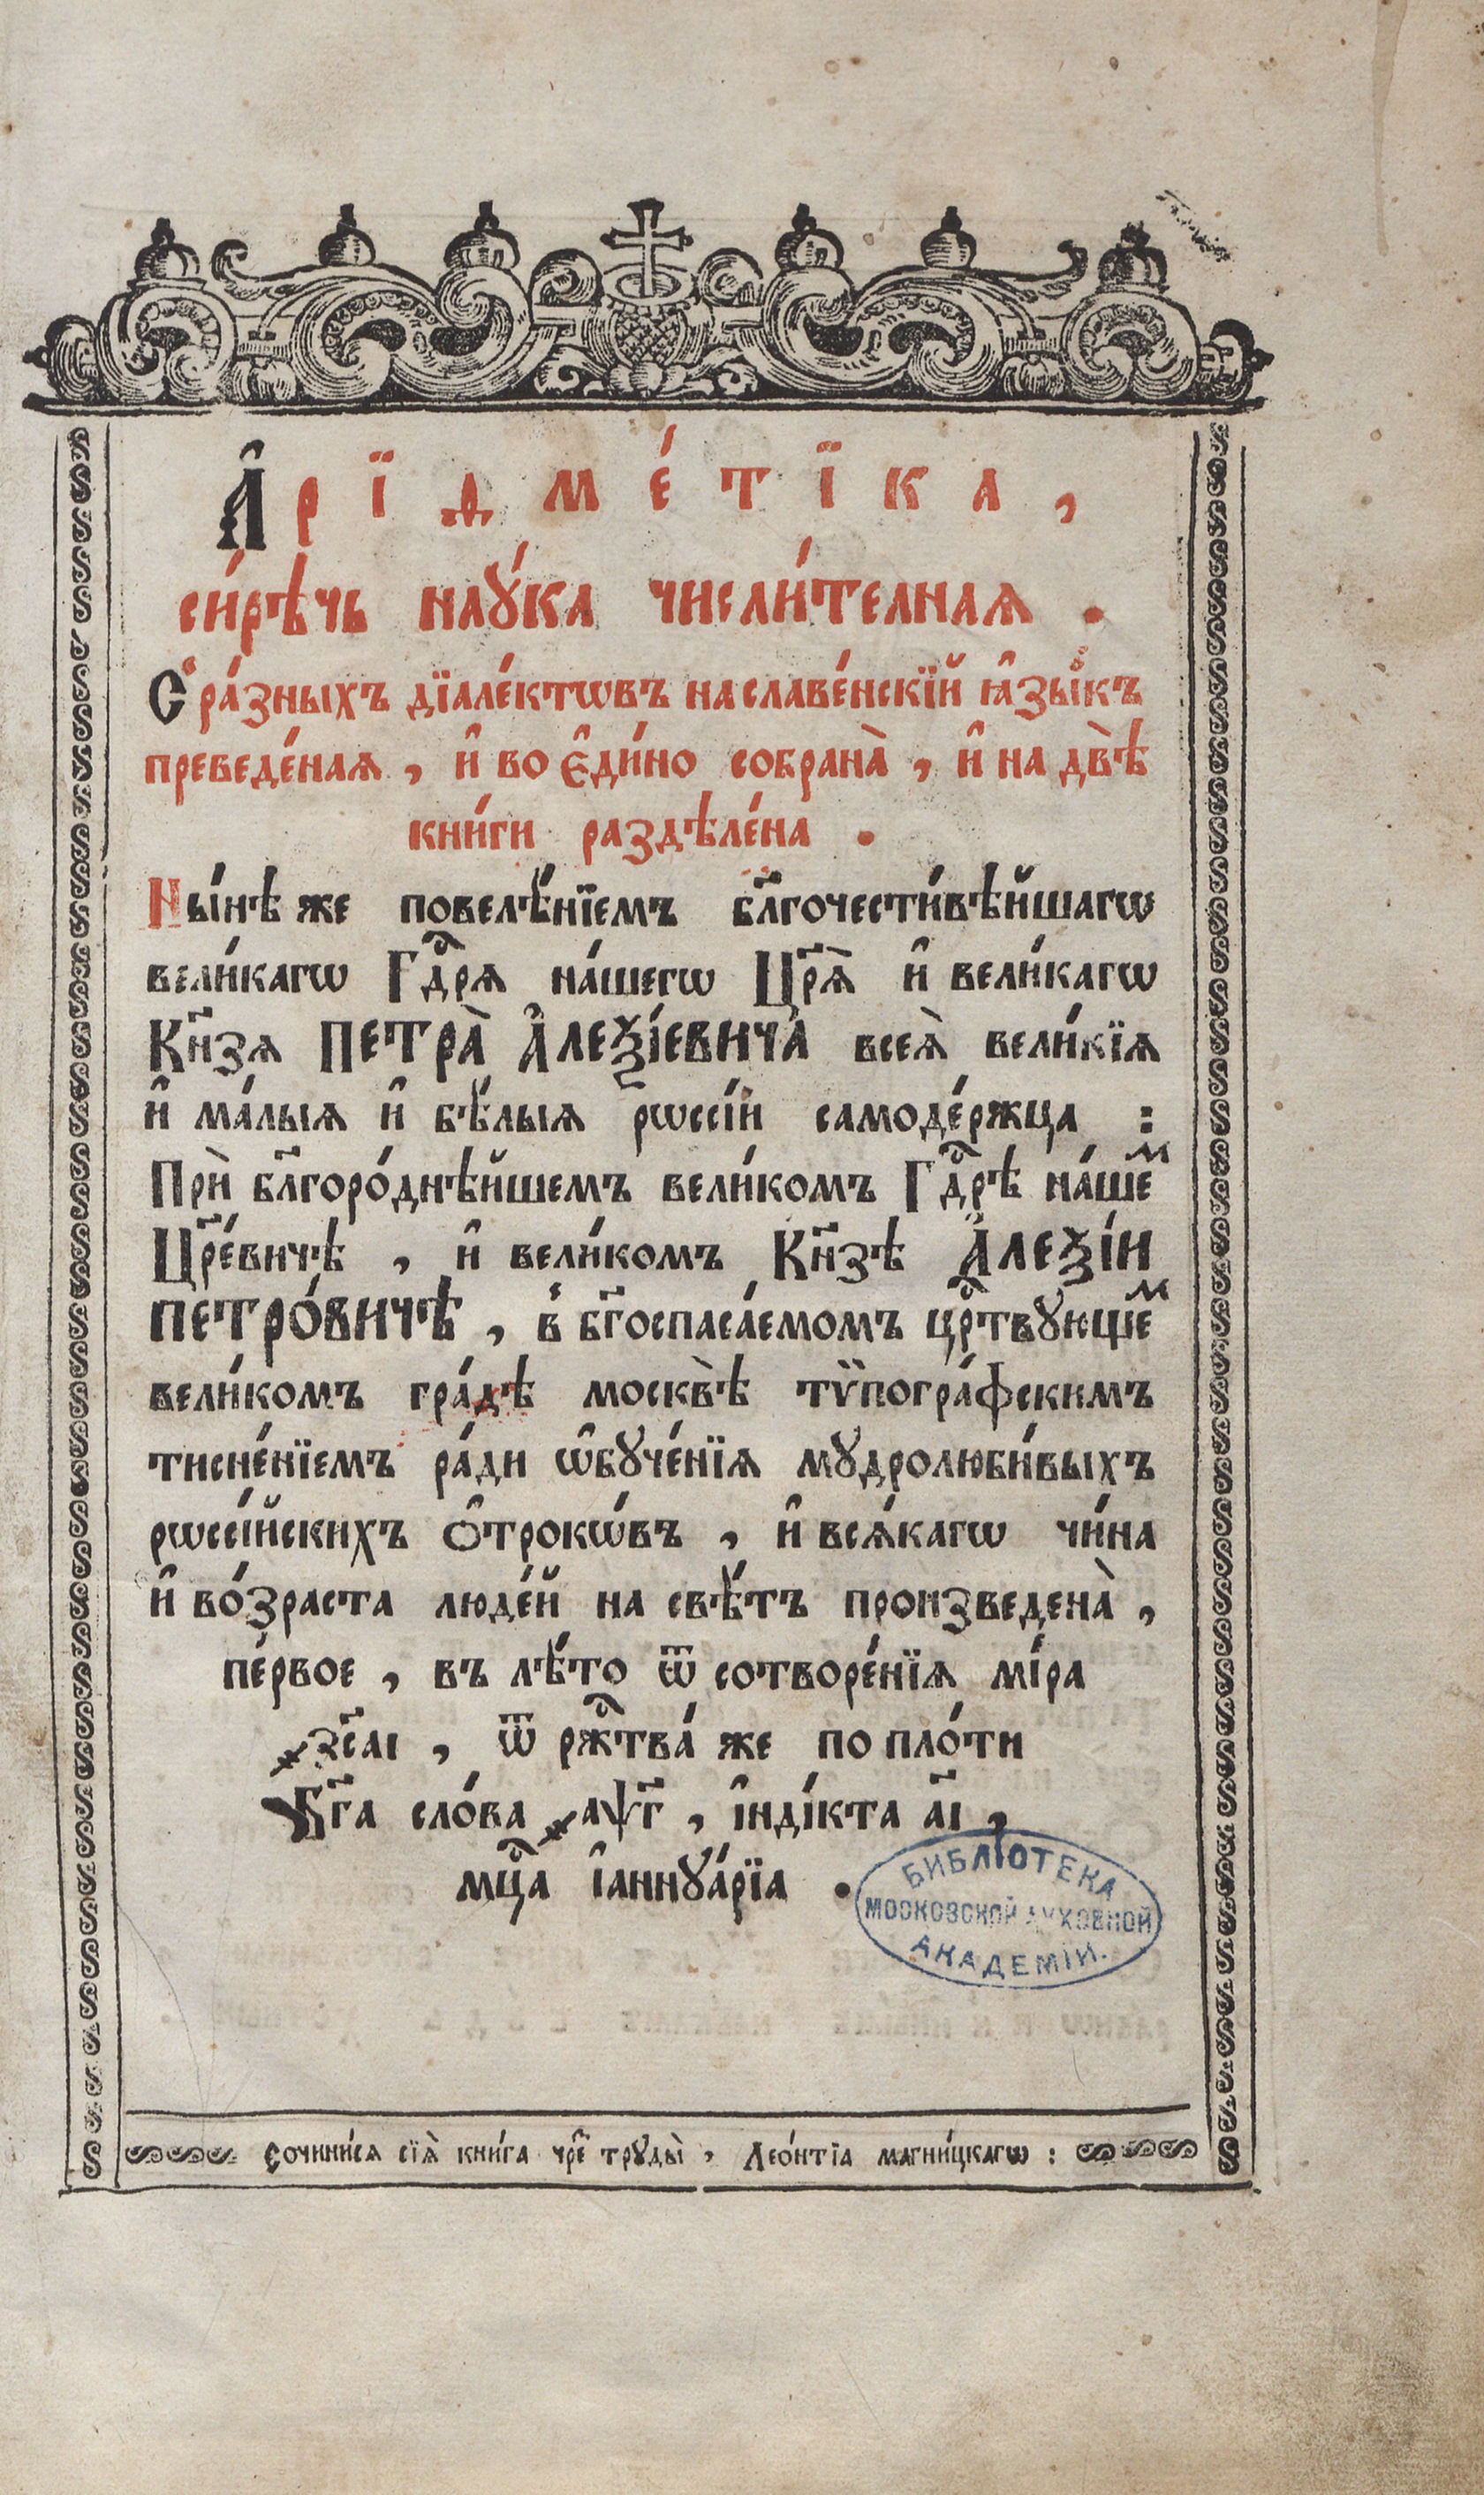 А҆рїѳме́тїка,
си́рѣчь наꙋ́ка числи́телная.
С̾ ра́зныхъ дїале́ктѡвъ на славе́нскїй ꙗ҆зы́къ
преведе́ная, и҆ во є҆ди́но собрана̀, и҆ на двѣ̀
кни́ги раздѣле́на.
Ны́нѣ же повелѣ́нїемъ бл҃гочести́вѣйшагѡ
вели́кагѡ Гдⷭ҇рѧ на́шегѡ Цр҃ѧ̀ и҆ вели́кагѡ
Кн҃зѧ ПЕТРА̀ А҆ЛЕѮІ́ЕВИЧА всеѧ̀ вели́кїѧ
и҆ ма́лыѧ и҆ бѣ́лыѧ рѡссі́и самоде́ржца :
Прѝ бл҃горо́днѣйшемъ вели́комъ Гдⷭ҇рѣ на́шеⷨ
Цр҃е́вичѣ, и҆ вели́комъ Кн҃зѣ А҆ЛЕѮІ́И
ПЕТРО́ВИЧѢ, в̾ бг҃оспаса́емомъ црⷭ҇твꙋющеⷨ
вели́комъ гра́дѣ москвѣ̀ тѷпогра́фскимъ
тисне́нїемъ ра́ди ѡ҆бꙋче́нїѧ мꙋдролюби́выхъ
рѡссі́йскихъ ѻ҆трокѡ́въ, и҆ всѧ́кагѡ чи́на
и҆ во́зраста люде́й на свѣ́тъ произведена̀,
пе́рвое, въ лѣ́то ѿ сотворе́нїѧ мі́ра
҂зс҃аі, ѿ ржⷭ҇тва́ же по пло́ти
Бг҃а сло́ва ҂аѱ҃г, і҆нді́кта а҃і,
мцⷭ҇а і҆аннꙋа́рїа.
БИБЛІОТЕКА
МОСКОВСКОЙ ДУХОВНОЙ
АКАДЕМІИ.
Сочини́сѧ сїѧ̀ кни́га чре҃ трꙋды̀, Лео́нтїа магни́цкагѡ :